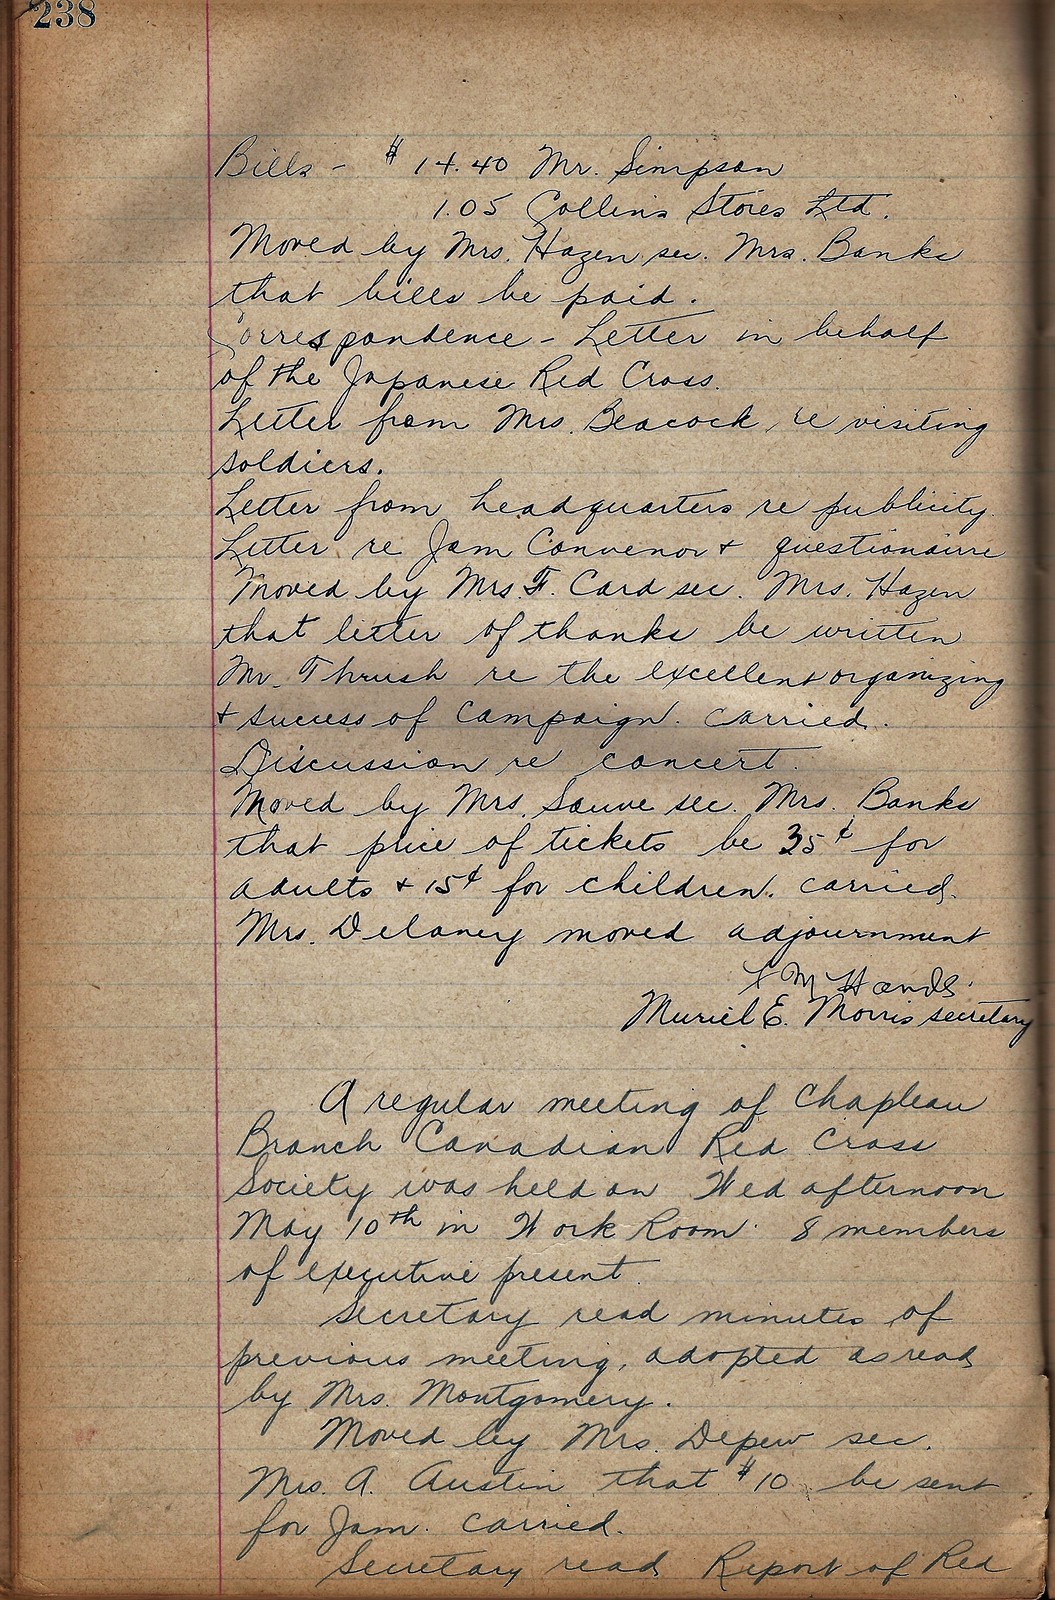 238
Bills - $14.40 Mr. Simpson
1.05 Collins Stores Ltd.
Moved by Mrs. Hazen sec. Mrs. Banks
that bills be paid.
Correspondence - Letter in behalf
of the Japanese Red Cross.
Letter from Mrs. Beacock, re visiting
soldiers.
Letter from headquarters re publicity.
Letter re Jam Convenor + questionairre
Moved by Mrs. F. Card sec. Mrs. Hazen
that letter of thanks be written
Mr. Thrush re the excellent organizing
+ success of campaign. Carried.
Discussion re concert.
Moved by Mrs. Sauve sec. Mrs. Banks
that price of tickets be 35¢ for
adults + 15¢ for children. Carried.
Mrs. Delaney moved adjournment
M Hands.
Muriel E. Morris secretary
A regular meeting of Chapleau
Branch Canadian Red Cross
Society was held on Wed afternoon
May 10th in Work Room. 8 members
of executive present.
Secretary read minutes of
previous meeting, adopted as read
by Mrs. Montgomery.
Moved by Mrs. Depew sec.
Mrs. A. Austin that $10. be sent
for Jam. Carried.
Secretary read Report of Red